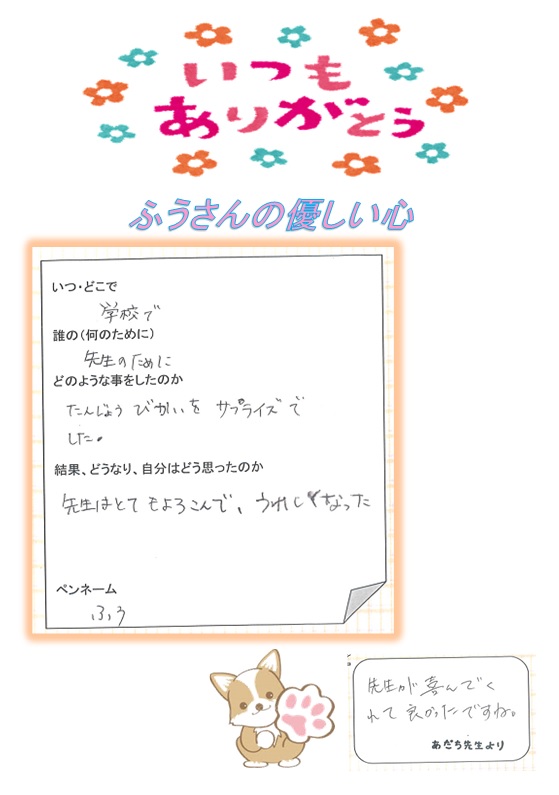 いつも
ありがとう
ふうさんの優しい心
いつ・どこで
学校で
誰の(何のために)
先生のために
どのような事をしたのか
たんじょうびかいをサプライズで
した。
結果、どうなり、自分はどう思ったのか
先生はとてもよろこんで、うれしくなった
ペンネーム
ふぅ
先生が喜んでく
れて良かったですね。
あだち先生より